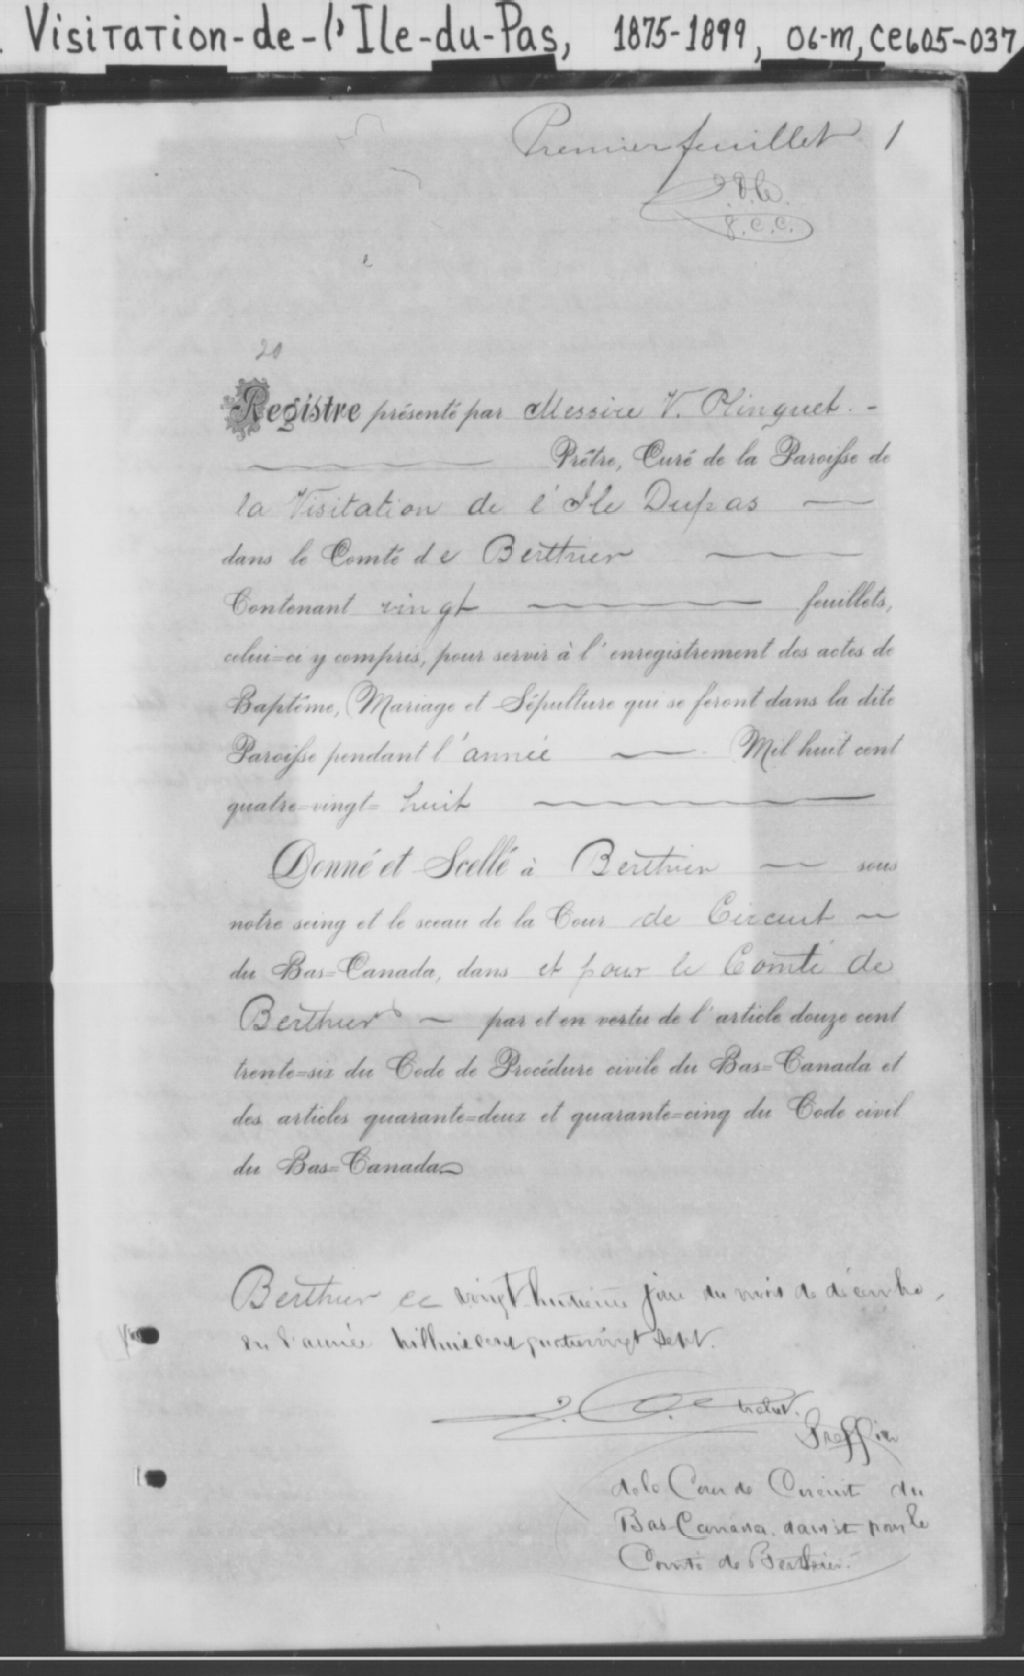 Visitation-de-l'Ile-du-Pas, 1875-1899, 06-m, CE605-037
Premier feuillet 1
G.C.C.
20
Registre présenté par Messire V. Plinguet. -
Prêtre, Curé de la Paroisse de
la Visitation de l'Ile Dupas
dans le Comté de Berthier
Contenant vingt feuillets,
celui=ci y compris, pour servir à l'enregistrement des actes de
Baptême, Mariage et Sépulture qui se feront dans la dite
Paroisse pendant l'année Mil huit cent
quatre=vingt= huit
Donné et Scellé à Berthier sous
notre seing et le sceau de la Cour de Circuit
du Bas=Canada, dans et pour le Comté de
Berthier par et en vertu de l'article douze cent
trente=six du Code de Procédure civile du Bas=Canada et
des articles quarante=deux et quarante=cinq du Code civil
du Bas=Canada
Berthier ce vingt huitième jour du mois de décembre,
de l'année mil huit cent quatrevingt sept.
Greffier
de la Cour de Circuit du
Bas Canada dans et pour le
Comté de Berthier.